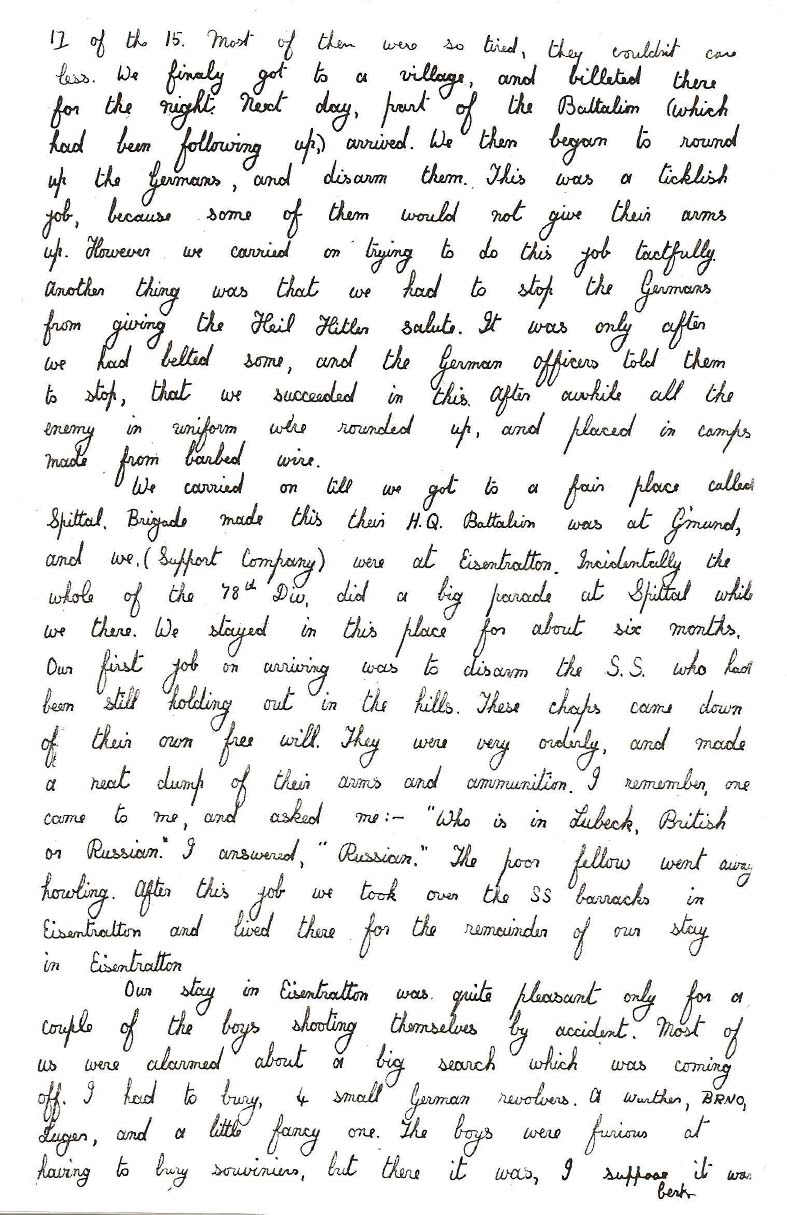 17 of the 15. Most of then were so tired, they couldnt care
less. We finaly got to a village, and billeted there
for the night. Next day, part of the Battalion (which
had been following up,) arrived. We then began to round
up the Germans, and disarm them. This was a ticklish
job, because some of them would not give their arms
up. However we carried on trying to do this job tactfully.
Another thing was that we had to stop the Germans
from giving the Heil Hitler salute. It was only after
we had belted some, and the German officers told them
to stop, that we succeeded in this. After awhile all the
enemy in uniform were rounded up, and placed in camps
made from barbed wire.
We carried on till we got to a fair place called
Spittal. Brigade made this their H.Q. Battalion was at G'mund,
and we, (Support Company) were at Eisentratton. Incidentally the
whole of the 78th Div, did a big parade at Spittal while
we there. We stayed in this place for about six months.
Our first job on arriving was to disarm the S.S. who had
been still holding out in the hills. These chaps came down
of their own free will. They were very orderly, and made
a neat dump of their arms and ammunition. I remember, one
came to me, and asked me:- "Who is in Lubeck, British
or Russian." I answered, "Russian." The poor fellow went away
howling. After this job we took over the SS barracks in
Eisentratton and lived there for the remainder of our stay
in Eisentratton
Our stay in Eisentratton was quite pleasant only for a
couple of the boys shooting themselves by accident. Most of
us were alarmed about a big search which was coming
off. I had to bury, 4 small German revolvers. A Wurther, BRNO,
Luger, and a little fancy one. The boys were furious at
having to bury souviniers, but there it was, I suppose it was
best